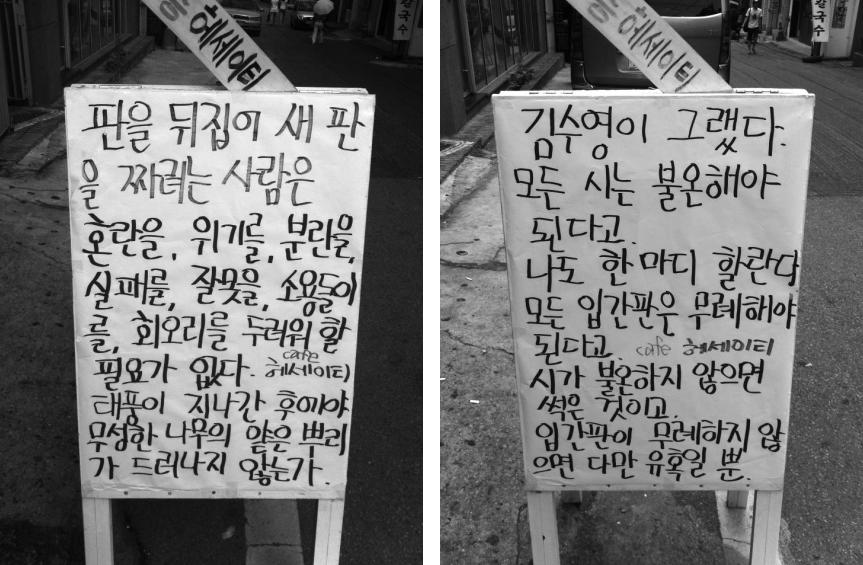 헤세이티
판을 뒤집어 새 판
을 짜려는 사람은
혼란을, 위기를, 분란을,
실패를, 잘못을, 소용돌이
를, 회오리를 두려워 할
필요가 없다. cafe 헤세이티
태풍이 지나간 후에야
무성한 나무의 얕은 뿌리
가 드러나지 않는가.
칼국수
헤세이티
김수영이 그랬다.
모든 시는 불온해야
된다고.
나도 한 마디 할란다
모든 입간판은 무례해야
된다고. cafe 헤세이티
시가 불온하지 않으면
썩은 것이고.
입간판이 무례하지 않
으면 다만 유혹일 뿐.
칼국수